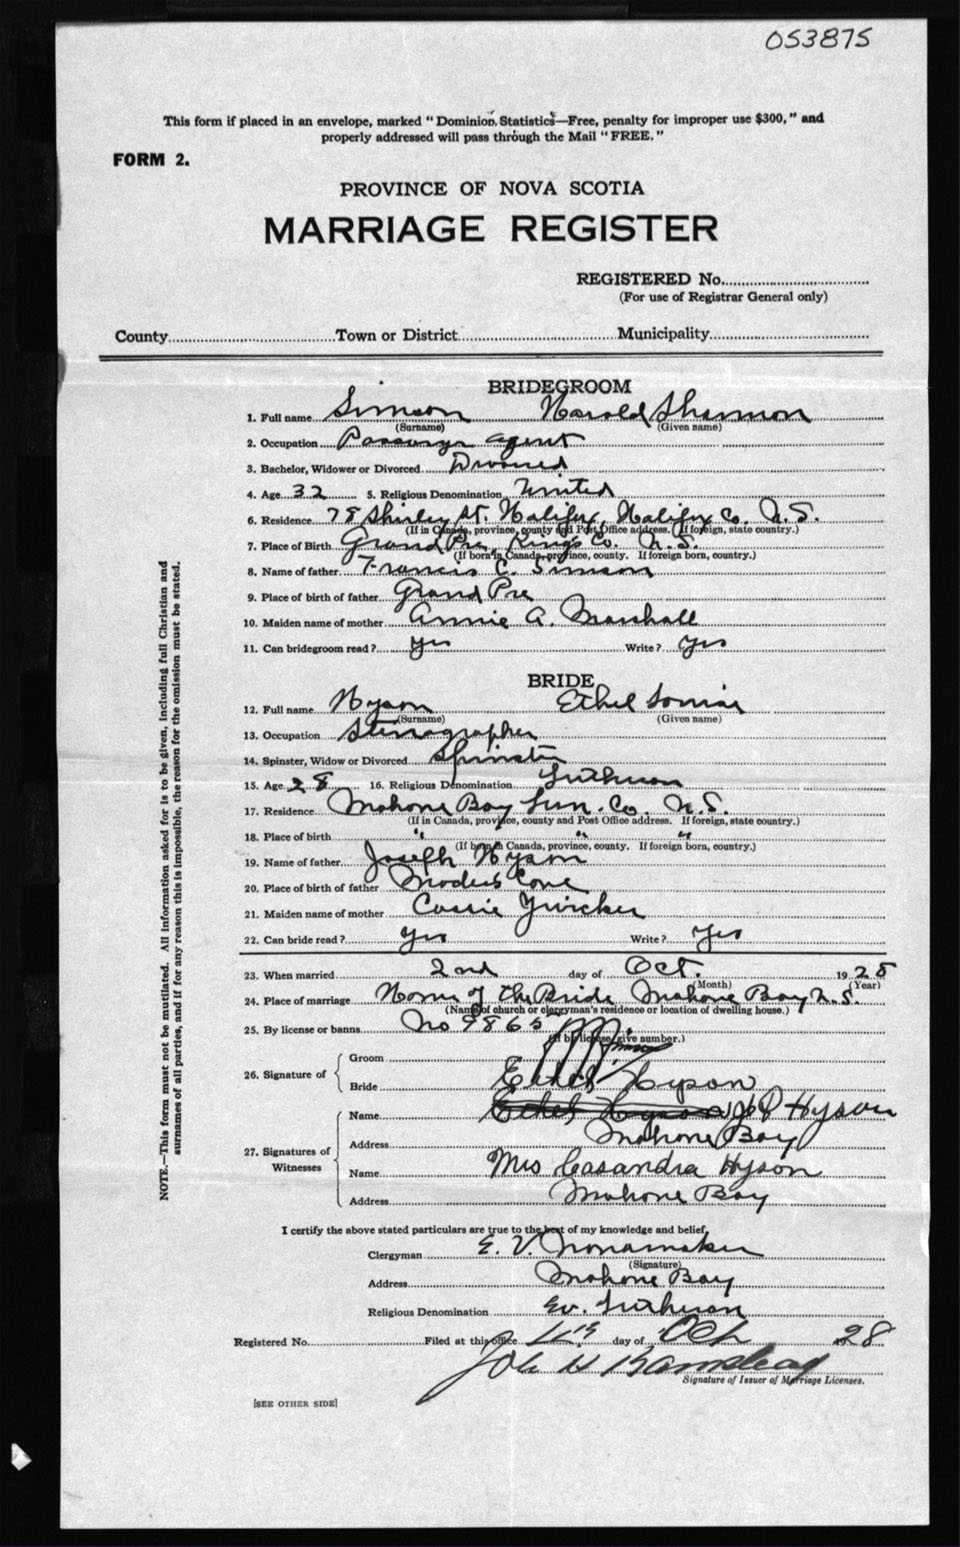 053875
This form if placed in an envelope, marked "Dominion Statistics—Free, penalty for improper use $300," and
properly addressed will pass through the Mail "FREE."
FORM 2.
PROVINCE OF NOVA SCOTIA
MARRIAGE REGISTER
REGISTERED No.
(For use of Registrar General only)
County Town or District Municipality
BRIDEGROOM
1. Full name Simson Harold Shannon
(Surname) (Given name)
2. Occupation Passenger agent
3. Bachelor, Widower or Divorced Divorced
4. Age 32 5. Religious Denomination United
6. Residence 78 Shirley St. Halifax, Halifax Co. N.S.
(If in Canada, province, county and Post Office address. If foreign, state country.)
7. Place of Birth Grand Pre Kings Co. N.S.
(If born in Canada, province, county. If foreign born, country.)
8. Name of father Francis C. Simson
9. Place of birth of father Grand Pre
10. Maiden name of mother Annie A. Marshall
11. Can bridegroom read? Yes Write? Yes
BRIDE
12. Full name Hyson Ethel Louise
(Surname) (Given name)
13. Occupation Stenographer
14. Spinster, Widow or Divorced Spinster
15. Age 28 16. Religious Denomination Lutheran
17. Residence Mahone Bay Lun. Co. N.S.
(If in Canada, province, county and Post Office address. If foreign, state country.)
18. Place of birth " " "
(If born in Canada, province, county. If foreign born, country.)
19. Name of father Joseph Hyson
20. Place of birth of father Maders Cove
21. Maiden name of mother Cassie Zwicker
22. Can bride read? Yes Write? Yes
23. When married 2nd day of Oct. 1928
(Month) (Year)
24. Place of marriage Home of the Bride Mahone Bay N.S.
(Name of church or clergyman's residence or location of dwelling house.)
25. By license or banns No 9865
(If by license, give number.)
26. Signature of
Groom
Bride Ethel Hyson
27. Signatures of Witnesses
Name Ethel Hyson Hyson
Address Mahone Bay
Name Mrs Casandra Hyson
Address Mahone Bay
I certify the above stated particulars are true to the best of my knowledge and belief,
Clergyman E. V. Nonamaker
(Signature)
Address Mahone Bay
Religious Denomination Ev. Lutheran
Registered No. Filed at this office day of Oct 28
Signature of Issuer of Marriage Licenses.
[SEE OTHER SIDE]
NOTE.—This form must not be mutilated. All information asked for is to be given, including full Christian and
surnames of all parties, and if for any reason this is impossible, the reason for the omission must be stated.